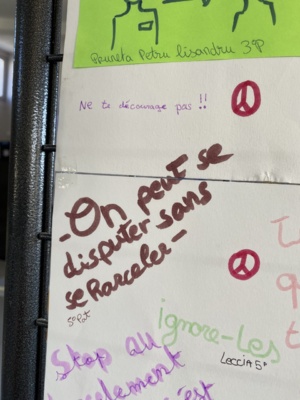 Pauneta Petru Lisandru 3°P
Ne te décourage pas !!
-On peut se
disputer sans
se harceler-
ignore-les
Leccia 5°
Stop au